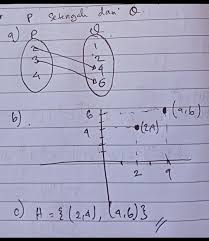 P setengah dari Q.
a) P Q
2 1
3 2
4 4
6
b)
6 (4,6)
4 (2,4)
2 4
c) A = {(2,4), (4,6)}